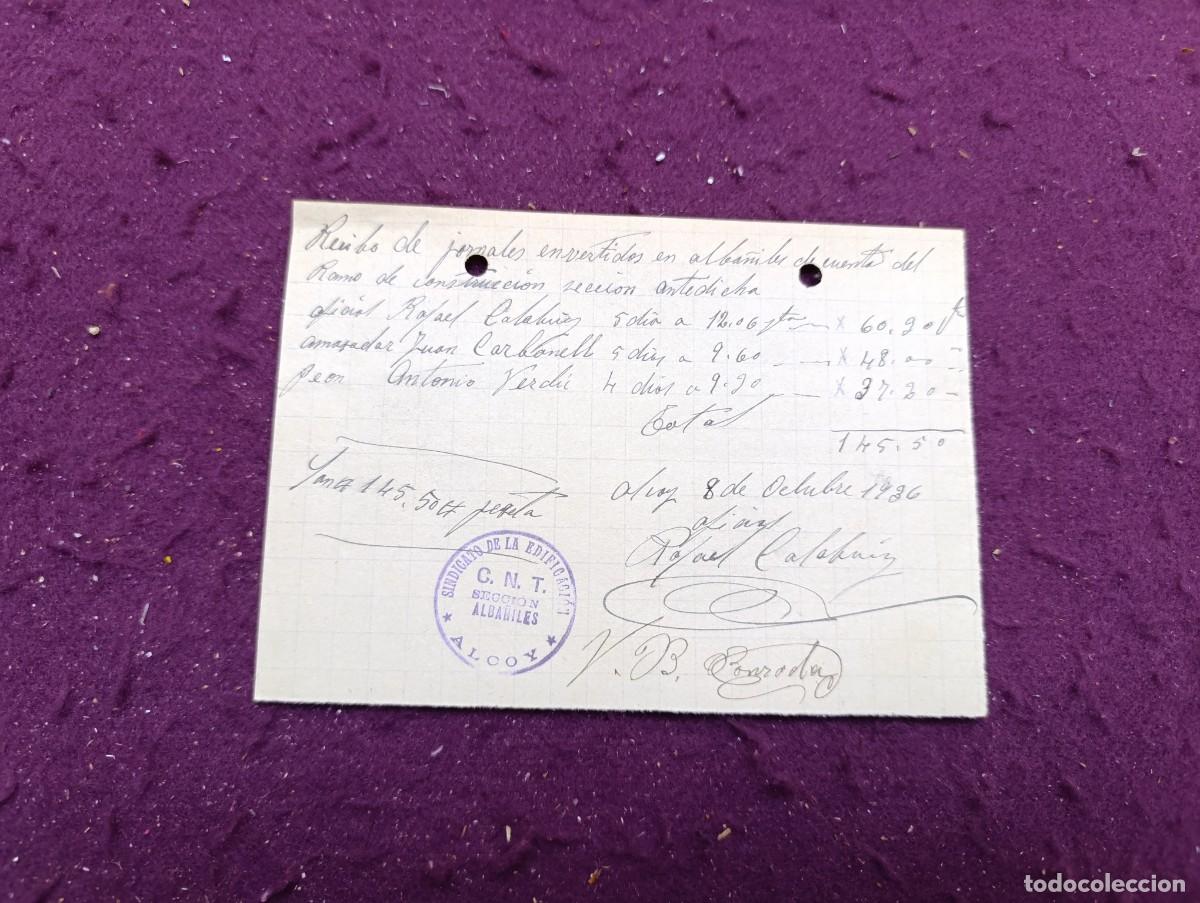 Recibo de jornales envertidos en albañiles de cuenta del
Ramo de construccion seccion antedicha
oficial Rafael Calabuig 5 dia a 12.06 pts — x 60.20 pts
amasador Juan Carbonell 5 dias a 9.60 — — x 48.00 —
peon Antonio Verdú 4 dias a 9.30 — x 37.20 —
Total 145.50
145.50 peseta
Alcoy 8 de Octubre 1936
oficial
Rafael Calabuig
SINDICATO DE LA EDIFICACIÓN
C. N. T.
SECCIÓN
ALBAÑILES
★ ALCOY ★
V. B.
todocoleccion